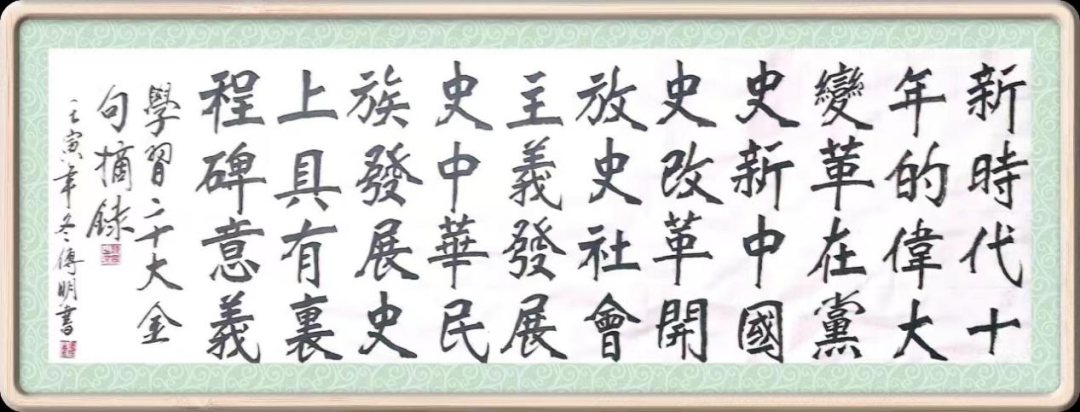 新時代十
年的偉大
變革在黨
史新中國
史改革開
放史社會
主義發展
史中華民
族發展史
上具有裏
程碑意義
學習二十大金
句摘録
壬寅年冬傅明書